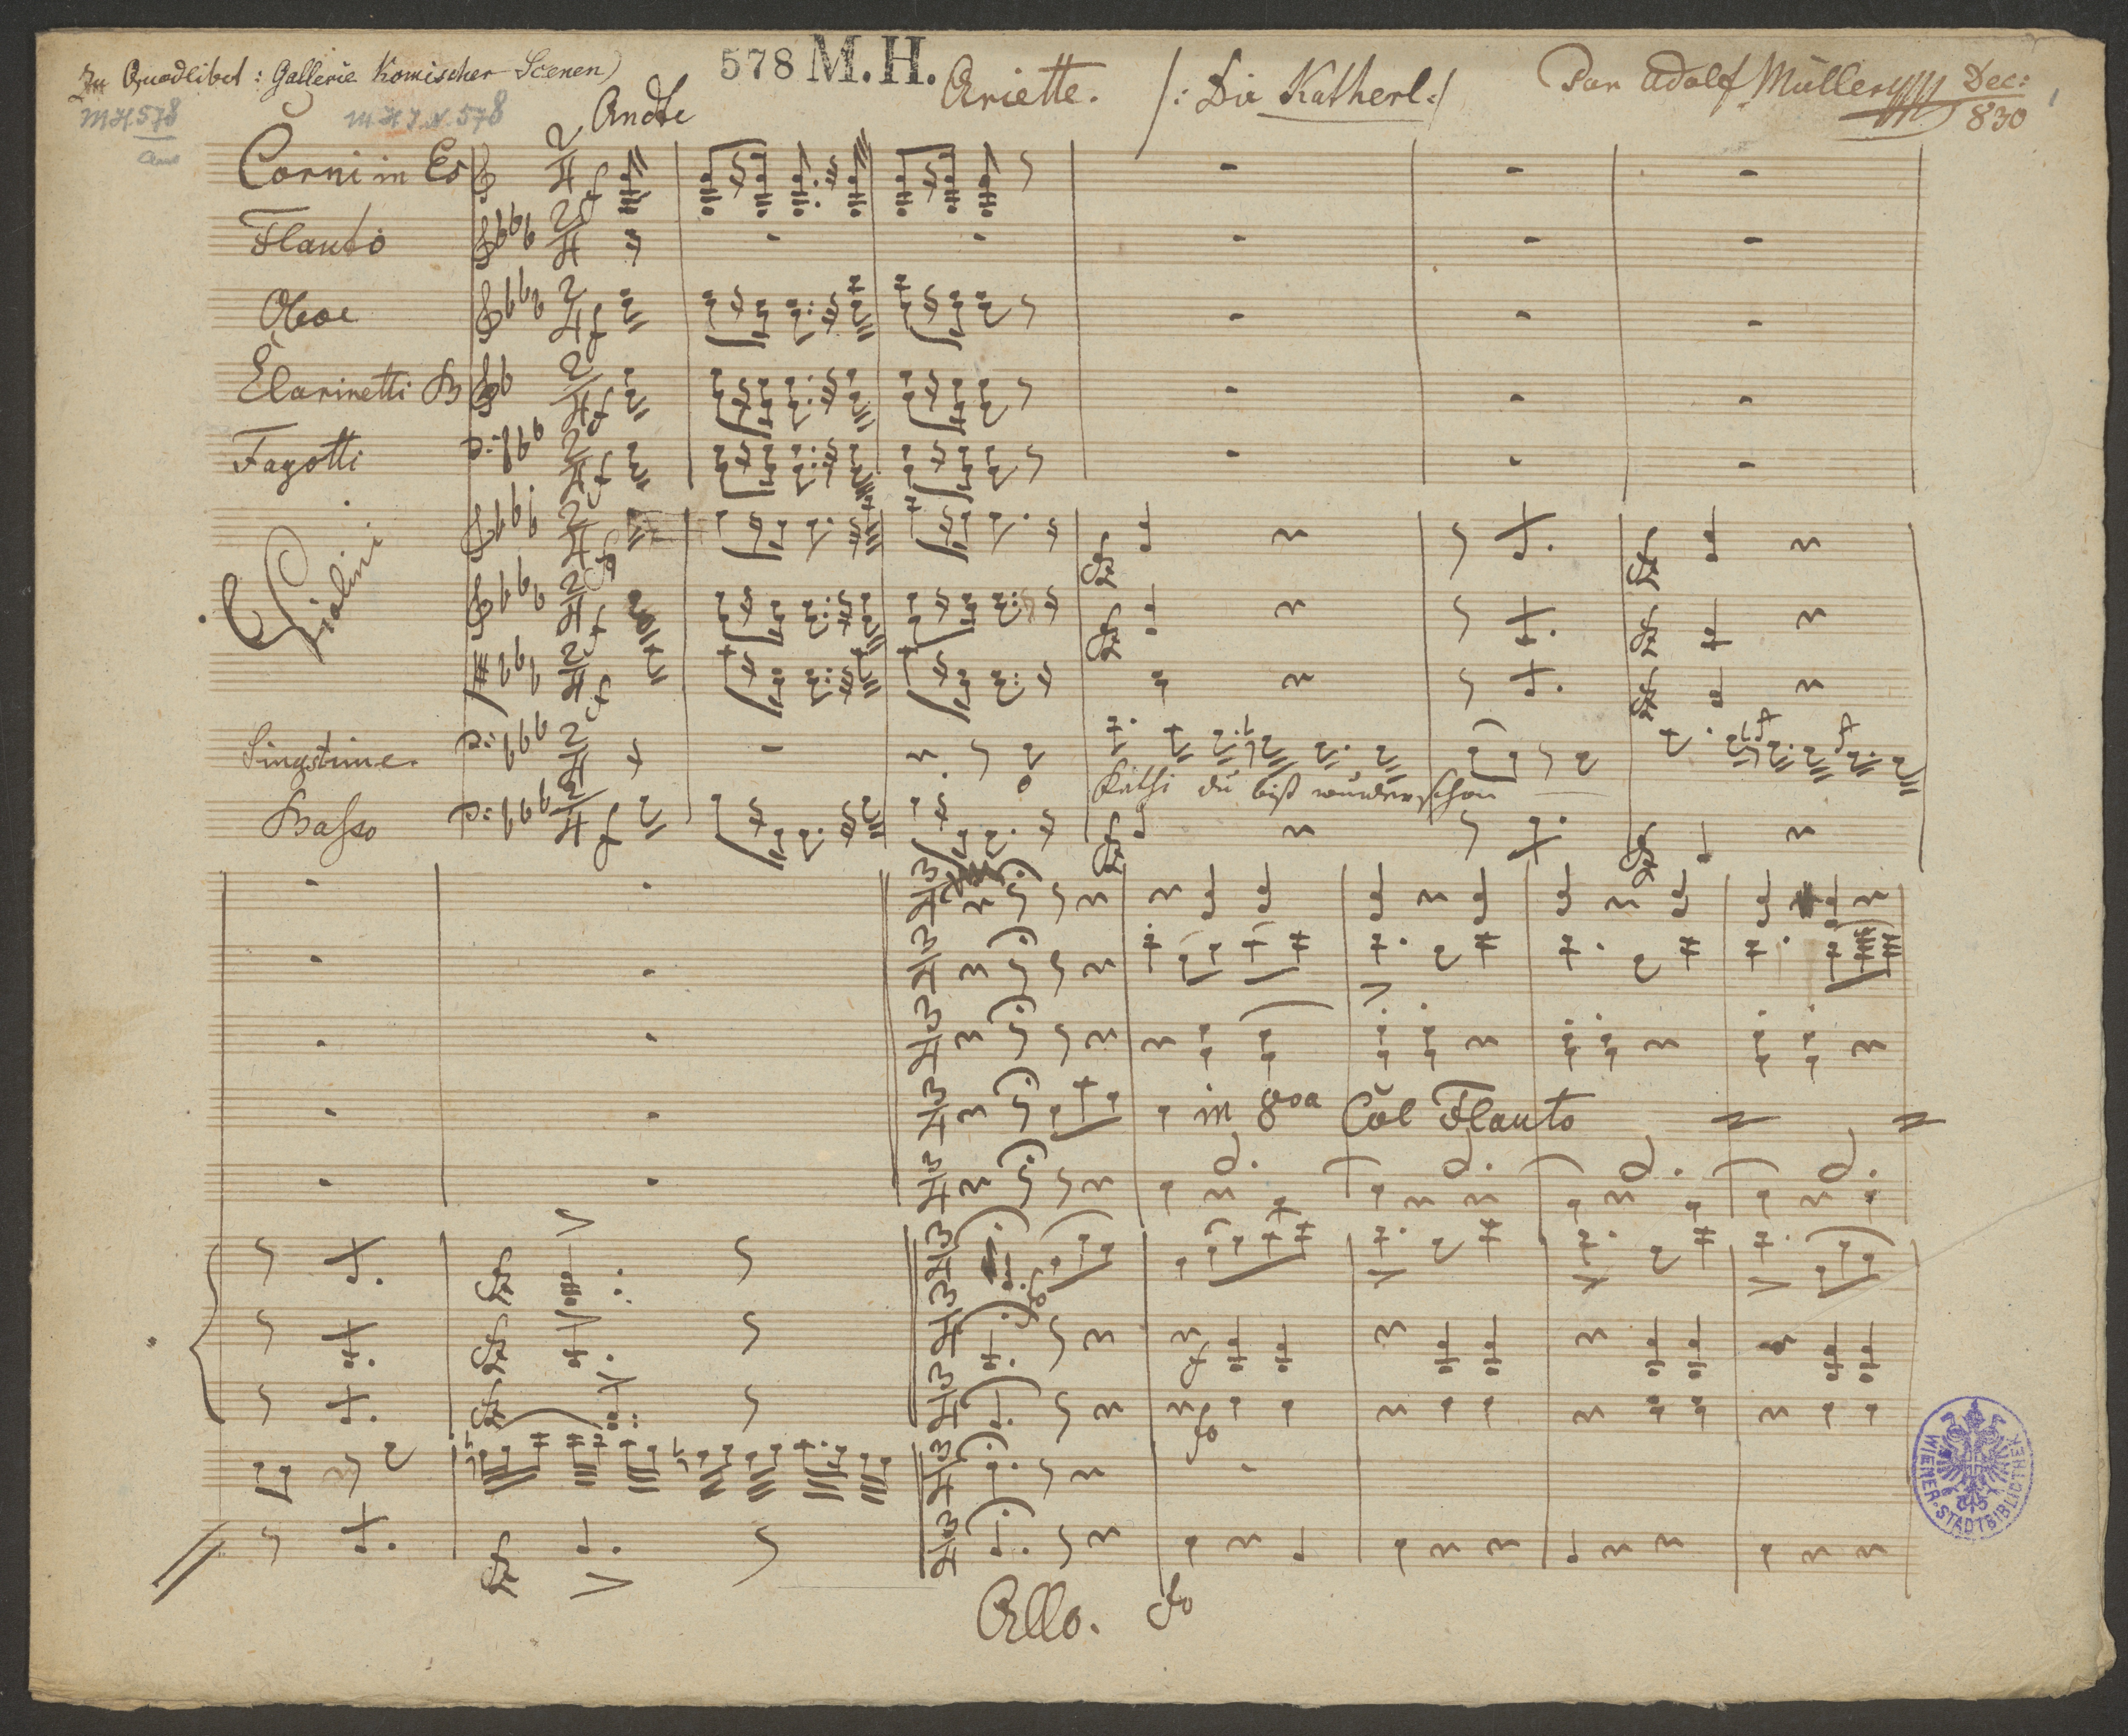 Zu Quodlibet: Gallerie Komischer Scenen)
578 M.H.
Ariette. /: Die Katherl :/
Par Adolf Müller
Dec: 830
1
MH 578
M H I N 578
Andte
Corni in Es
Flauto
Oboe
Clarinetti B
Fagotti
Violini
Singstime
Kathi du bist wunderschön
Basso
in 8va Col Flauto
Allo.
WIENER STADTBIBLIOTHEK